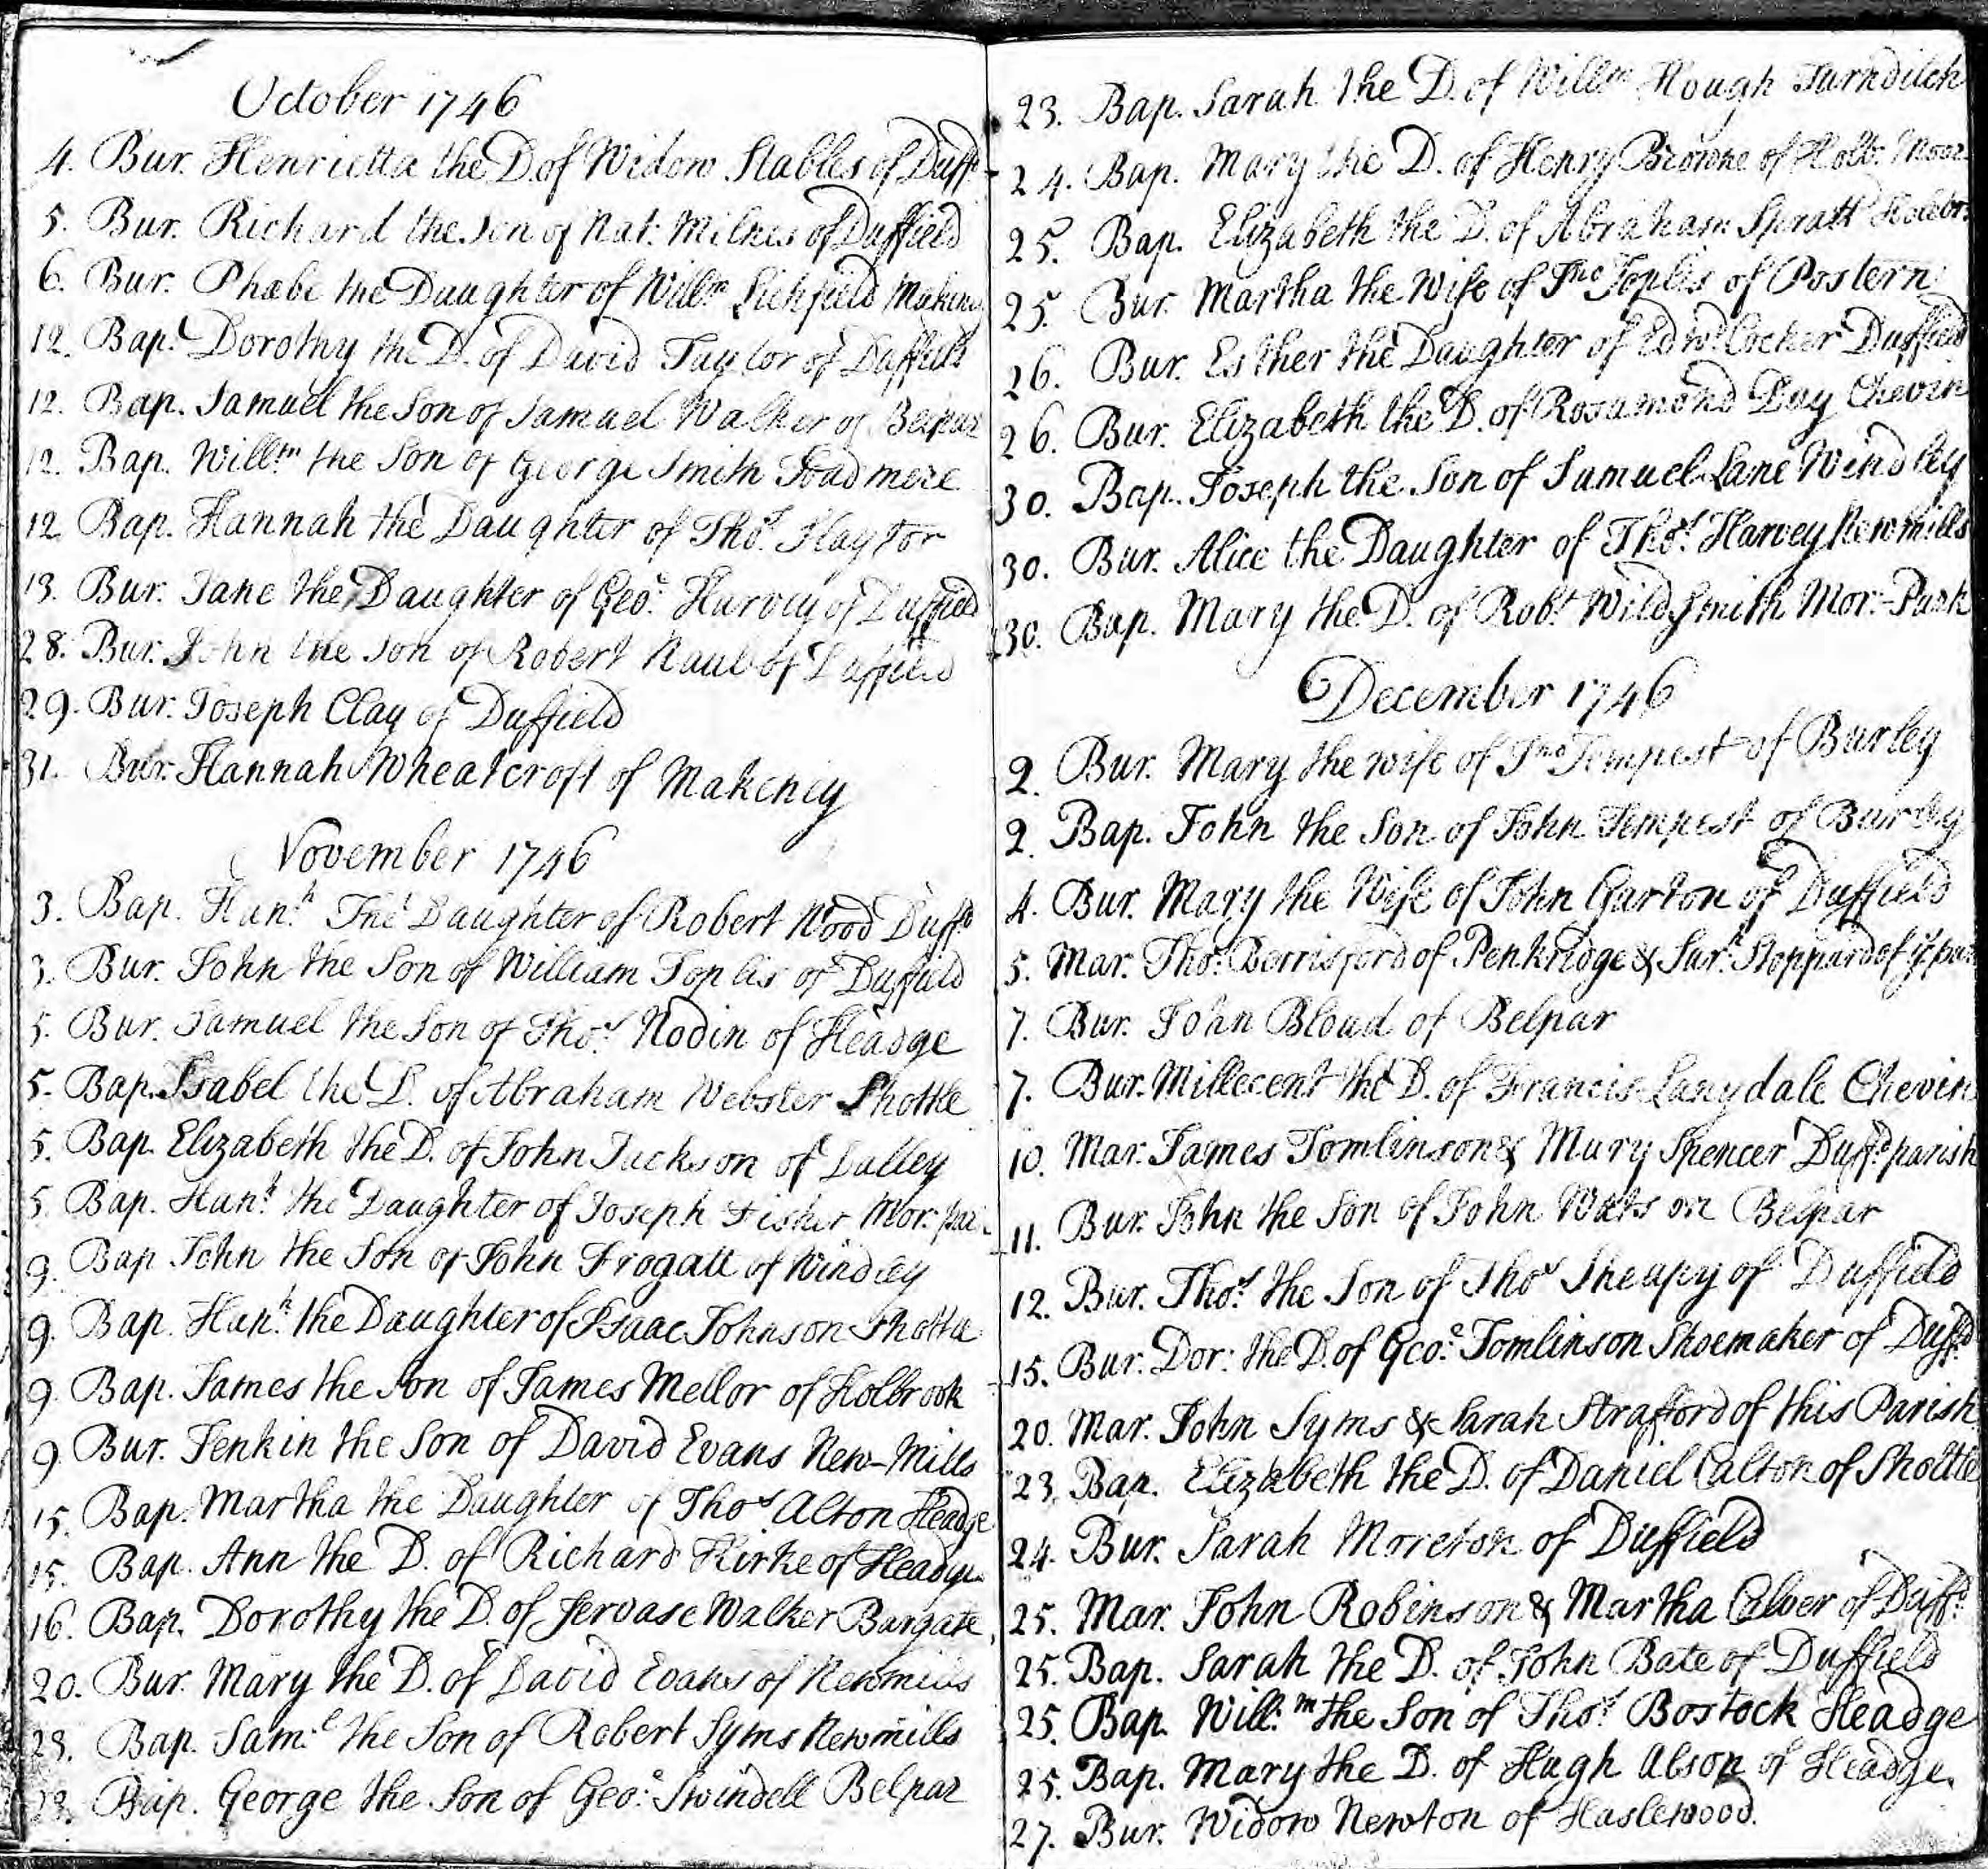 October 1746
4. Bur. Henrietta the D. of Widow Stables of Duff.
5. Bur. Richard the Son of Nat: Milnes of Duffield
6. Bur. Phœbe the Daughter of Will.m Lichfield Makeney
12. Bap. Dorothy the D. of David Taylor of Duffield
12. Bap. Samuel the Son of Samuel Walker of Belpar
12. Bap. Will.m the Son of George Smith Toadmere
12. Bap. Hannah the Daughter of Tho.s Haytor
13. Bur. Jane the Daughter of Geo.e Harvey of Duffield
28. Bur. John the Son of Robert of Duffield
29. Bur. Joseph Clay of Duffield
31. Bur. Hannah Wheatcroft of Makeney
November 1746
3. Bap. Han.h The Daughter of Robert Wood Duff.d
3. Bur. John the Son of William Toplis of Duffield
5. Bur. Samuel the Son of Tho.s Nodin of Headge
5. Bap. Isabel the D. of Abraham Webster Shottle
5. Bap. Elizabeth the D. of John Jackson of Dalley
5. Bap. Han.h the Daughter of Joseph Fisher Mor: par
9. Bap John the Son of John Frogatt of Windley
9. Bap. Han.h the Daughter of Isaac Johnson Shottle
9. Bap. James the Son of James Mellor of Holbrook
9. Bur. Jenkin the Son of David Evans New-Mills
15. Bap. Martha the Daughter of Tho.s Alton Headge
15. Bap. Ann the D. of Richard Kirke of Headge
16. Bap. Dorothy the D. of Jervase Walker Bargate
20. Bur. Mary the D. of David Evans of Newmills
23. Bap. Sam.l the Son of Robert Syms Newmills
23. Bap. George the Son of Geo.e Swindell Belpar
23. Bap. Sarah the D. of Will.m Hough Turnditch
24. Bap. Mary the D. of Henry Browne of Holb: Moor
25. Bap. Elizabeth the D. of Abraham Spratt Holebr.
25. Bur. Martha the Wife of Jno Toplis of Postern
26. Bur. Esther the Daughter of Edw.d Cocker Duffield
26. Bur. Elizabeth the D. of Rosamond Day Chevin
30. Bap. Joseph the Son of Samuel Lane Windley
30. Bur. Alice the Daughter of Tho.s Harvey Newmills
30. Bap. Mary the D. of Rob.t Wildsmith Mor:-Park
December 1746
2. Bur. Mary the wife of Jno Tempest of Burley
2. Bap. John the Son of John Tempest of Burley
4. Bur. Mary the Wife of John Garton of Duffield
5. Mar. Tho.s Berrisford of Penkridge & Sar.h Stoppard of ys par
7. Bur. John Bloud of Belpar
7. Bur. Millecent the D. of Francis Langdale Chevin
10. Mar. James Tomlinson & Mary Spencer Duff.d parish
11. Bur. John the Son of John Watson Belpar
12. Bur. Tho.s the Son of Tho.s Sheapy of Duffield
15. Bur. Dor: the D. of Geo.e Tomlinson Shoemaker of Duff.d
20. Mar. John Syms & Sarah Strafford of this Parish
23. Bap. Elizabeth the D. of Daniel Calton of Shottle
24. Bur. Sarah Morreton of Duffield
25. Mar. John Robinson & Martha Calver of Duff.d
25. Bap. Sarah the D. of John Bate of Duffield
25. Bap. Will.m the Son of Tho.s Bostock Headge
25. Bap. Mary the D. of Hugh Alson of Headge.
27. Bur. Widow Newton of Haslewood.